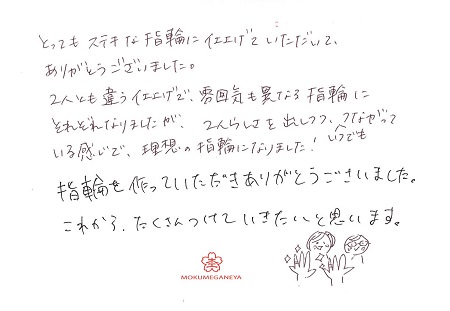 とっても ステキな 指輪に 仕上げて いただいて、
ありがとうございました。
2人とも違う仕上げで、雰囲気も異なる指輪に
それぞれなりましたが、2人らしさを出しつつ、つながって
いつでも
いる感じで、理想の指輪になりました!
指輪を作っていただきありがとうございました。
これから、たくさんつけていきたいと思います。
MOKUMEGANEYA